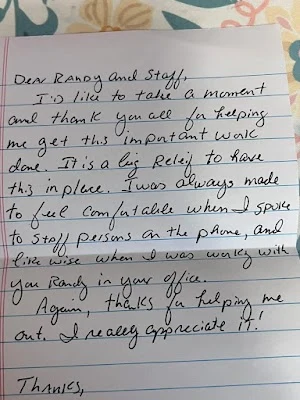 Dear Randy and Staff,
I'd like to take a moment
and thank you all for helping
me get this important work
done. It is a big Relief to have
this in place. I was always made
to feel comfutable when I spoke
to staff persons on the phone, and
like wise when I was workg with
you Randy in your office.
Again, thanks for helping me
out. I really appreciate it!
Thanks,